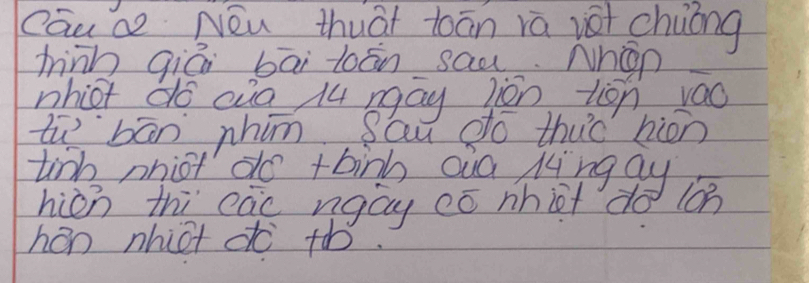 Câu 2. Nêu thuật toán và viết chương
trình giải bài toán sau. Nhập
nhiệt độ của 14 ngày liên tiếp vào
từ bàn phím. Sau đó thực hiện
tính nhiệt độ tbình của 14 ngày
hiện thị các ngày có nhiệt độ lớn
hơn nhiệt độ tb.